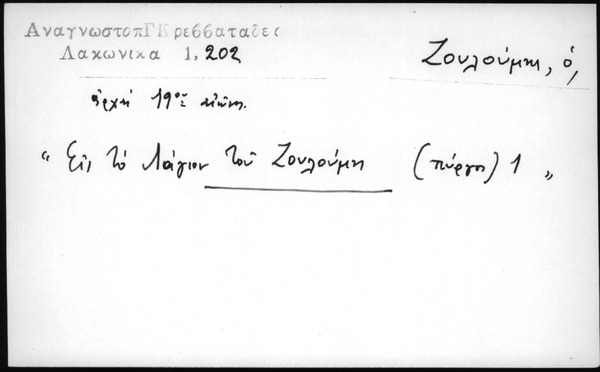 ΑναγνωστοπΓΚρεββαταδες
Λακωνικα 1, 202
Ζουλούμης, ὁ,
ἀρχή 19ου αἰῶνος.
" Εἰς τὸ Λάγιον τοῦ Ζουλούμη (πύργοι) 1 "